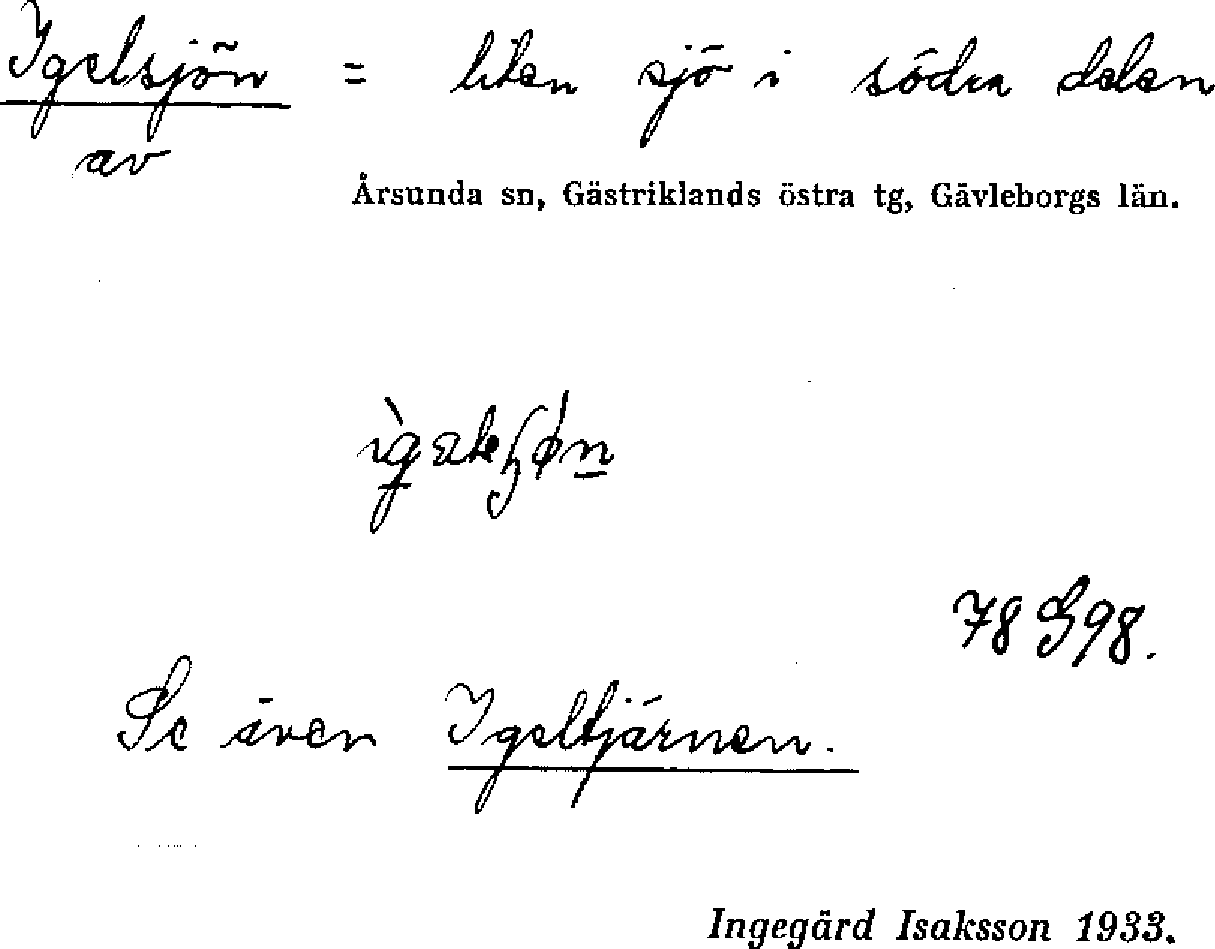 Igelsjön = liten sjö i södra delen
av
Årsunda sn, Gästriklands östra tg, Gävleborgs län.
78 G 98.
Se även Igeltjärnen.
Ingegärd Isaksson 1933.